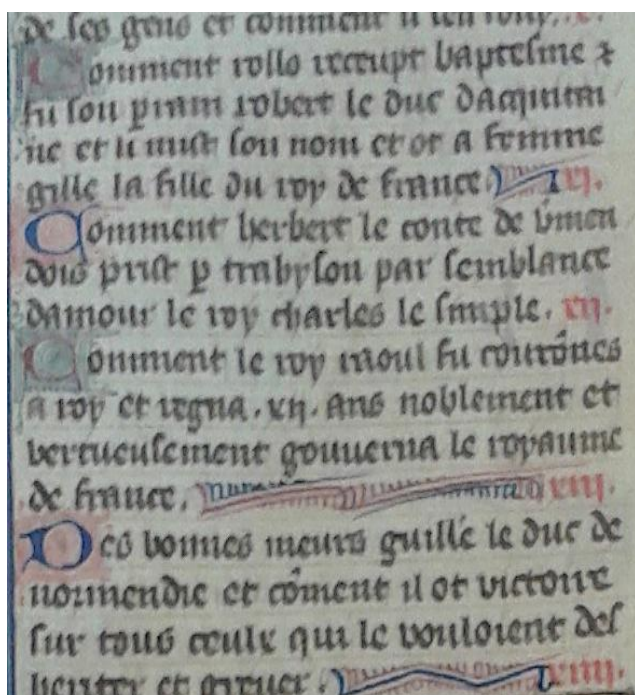 de ses gens et comment il
Comment rollo recupt baptesme &
fu son prrain robert le duc dacquitai
ne et li mist son nom et ot a femme
gille la fille du roy de france. xi.
Comment herbert le conte de vmen
dois prist p trahyson par semblance
damour le roy charles le simple. xii.
Comment le roy raoul fu courōnes
a roy et regna .xii. ans noblement et
vertueusement gouuerna le royaume
de france. xiii.
Des bonnes meurs guille le duc de
normendie et cōment il ot victoire
sur tous ceulx qui le vouloient des
heriter et greuer. xiiii.